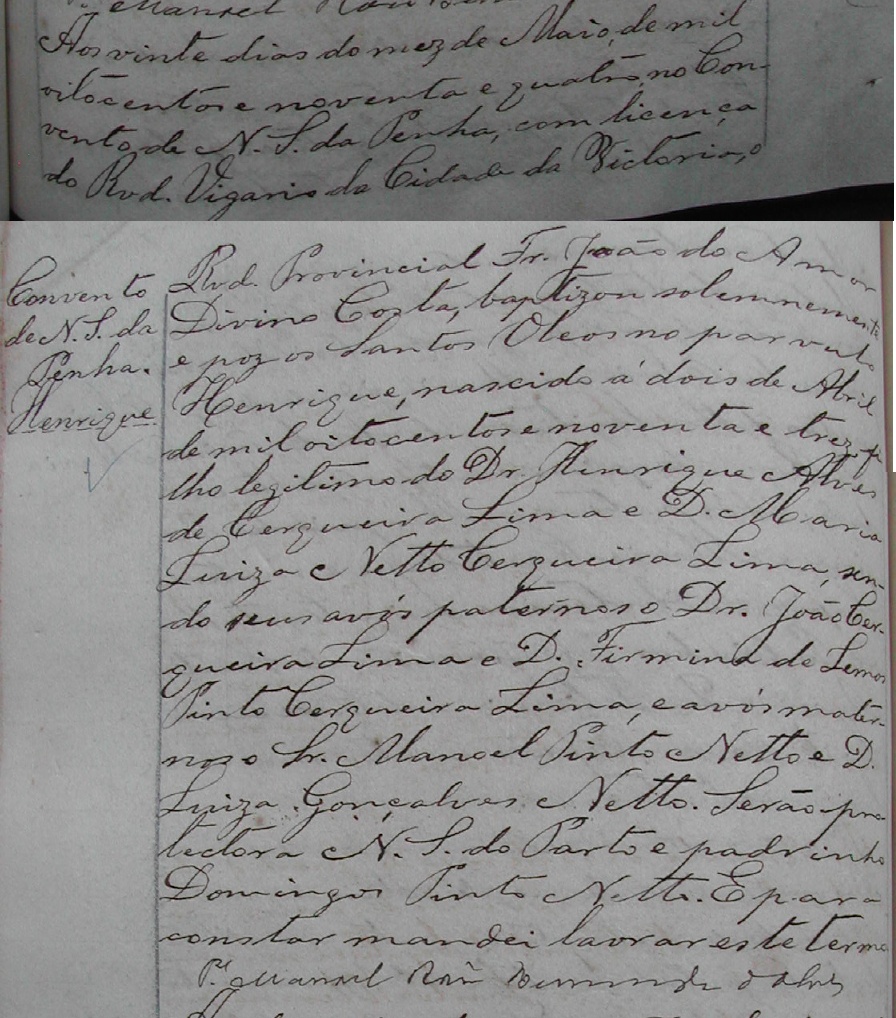 P. Manoel
Aos vinte dias do mez de Maio, de mil
oitocentos e noventa e quatro, no Con-
vento, de N. S. da Penha, com licença
do Rvd. Vigario da Cidade da Victoria, o
Convento
de N. S. da
Penha.
Henrique
Rvd. Provincial Fr. João do Amor
Divino Costa, baptizou solemnemente
e poz os Santos Oleos no parvulo
Henrique, nascido á dois de Abril
de mil oitocentos e noventa e trez, fi-
lho legitimo do Dr. Henrique Alves
de Cerqueira Lima e D. Maria
Luiza Netto Cerqueira Lima, sen-
do seus avós paternos o Dr. João Cer-
queira Lima e D. Firmina de Lemos
Pinto Cerqueira Lima, e avós mater-
nos o Sr. Manoel Pinto Netto e D.
Luiza Gonçalves Netto. Serão pro-
tectora N. S. do Parto e padrinho
Domingos Pinto Netto. E para
constar mandei lavrar este termo
P.e Manoel